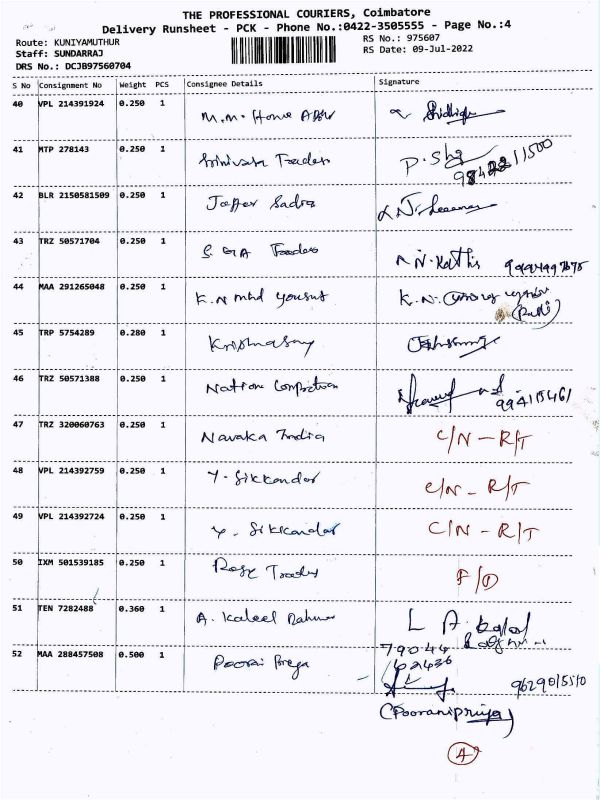 THE PROFESSIONAL COURIERS, Coimbatore
Delivery Runsheet - PCK - Phone No.:0422-3505555 - Page No.:4
Route: KUNIYAMUTHUR RS No.: 975607
Staff: SUNDARRAJ RS Date: 09-Jul-2022
DRS No.: DCJB97560704
S No Consignment No Weight PCS Consignee Details Signature
40 VPL 214391924 0.250 1 M.M. Home
41 MTP 278143 0.250 1 Srinivasa Traders
42 BLR 2150581509 0.250 1 Jaffer Sadiq
43 TRZ 50571704 0.250 1 Traders N. Kathi
44 MAA 291265048 0.250 1 K.N mhd yousuf K.N.
45 TRP 5754289 0.280 1 Krishnasamy
46 TRZ 50571388 0.250 1 Nation
47 TRZ 320060763 0.250 1 Navaka India C/N - R/T
48 VPL 214392759 0.250 1 Y. Sikkandar C/N - R/T
49 VPL 214392724 0.250 1 Y. Sikkandar C/N - R/T
50 IXM 501539185 0.250 1 Rose Traders F/D
51 TEN 7282488 0.360 1 A. Kaleel Rahman L A.
79044
62436
52 MAA 288457508 0.500 1 Poorni Priya 9629015510
(Pooranipriya)
4